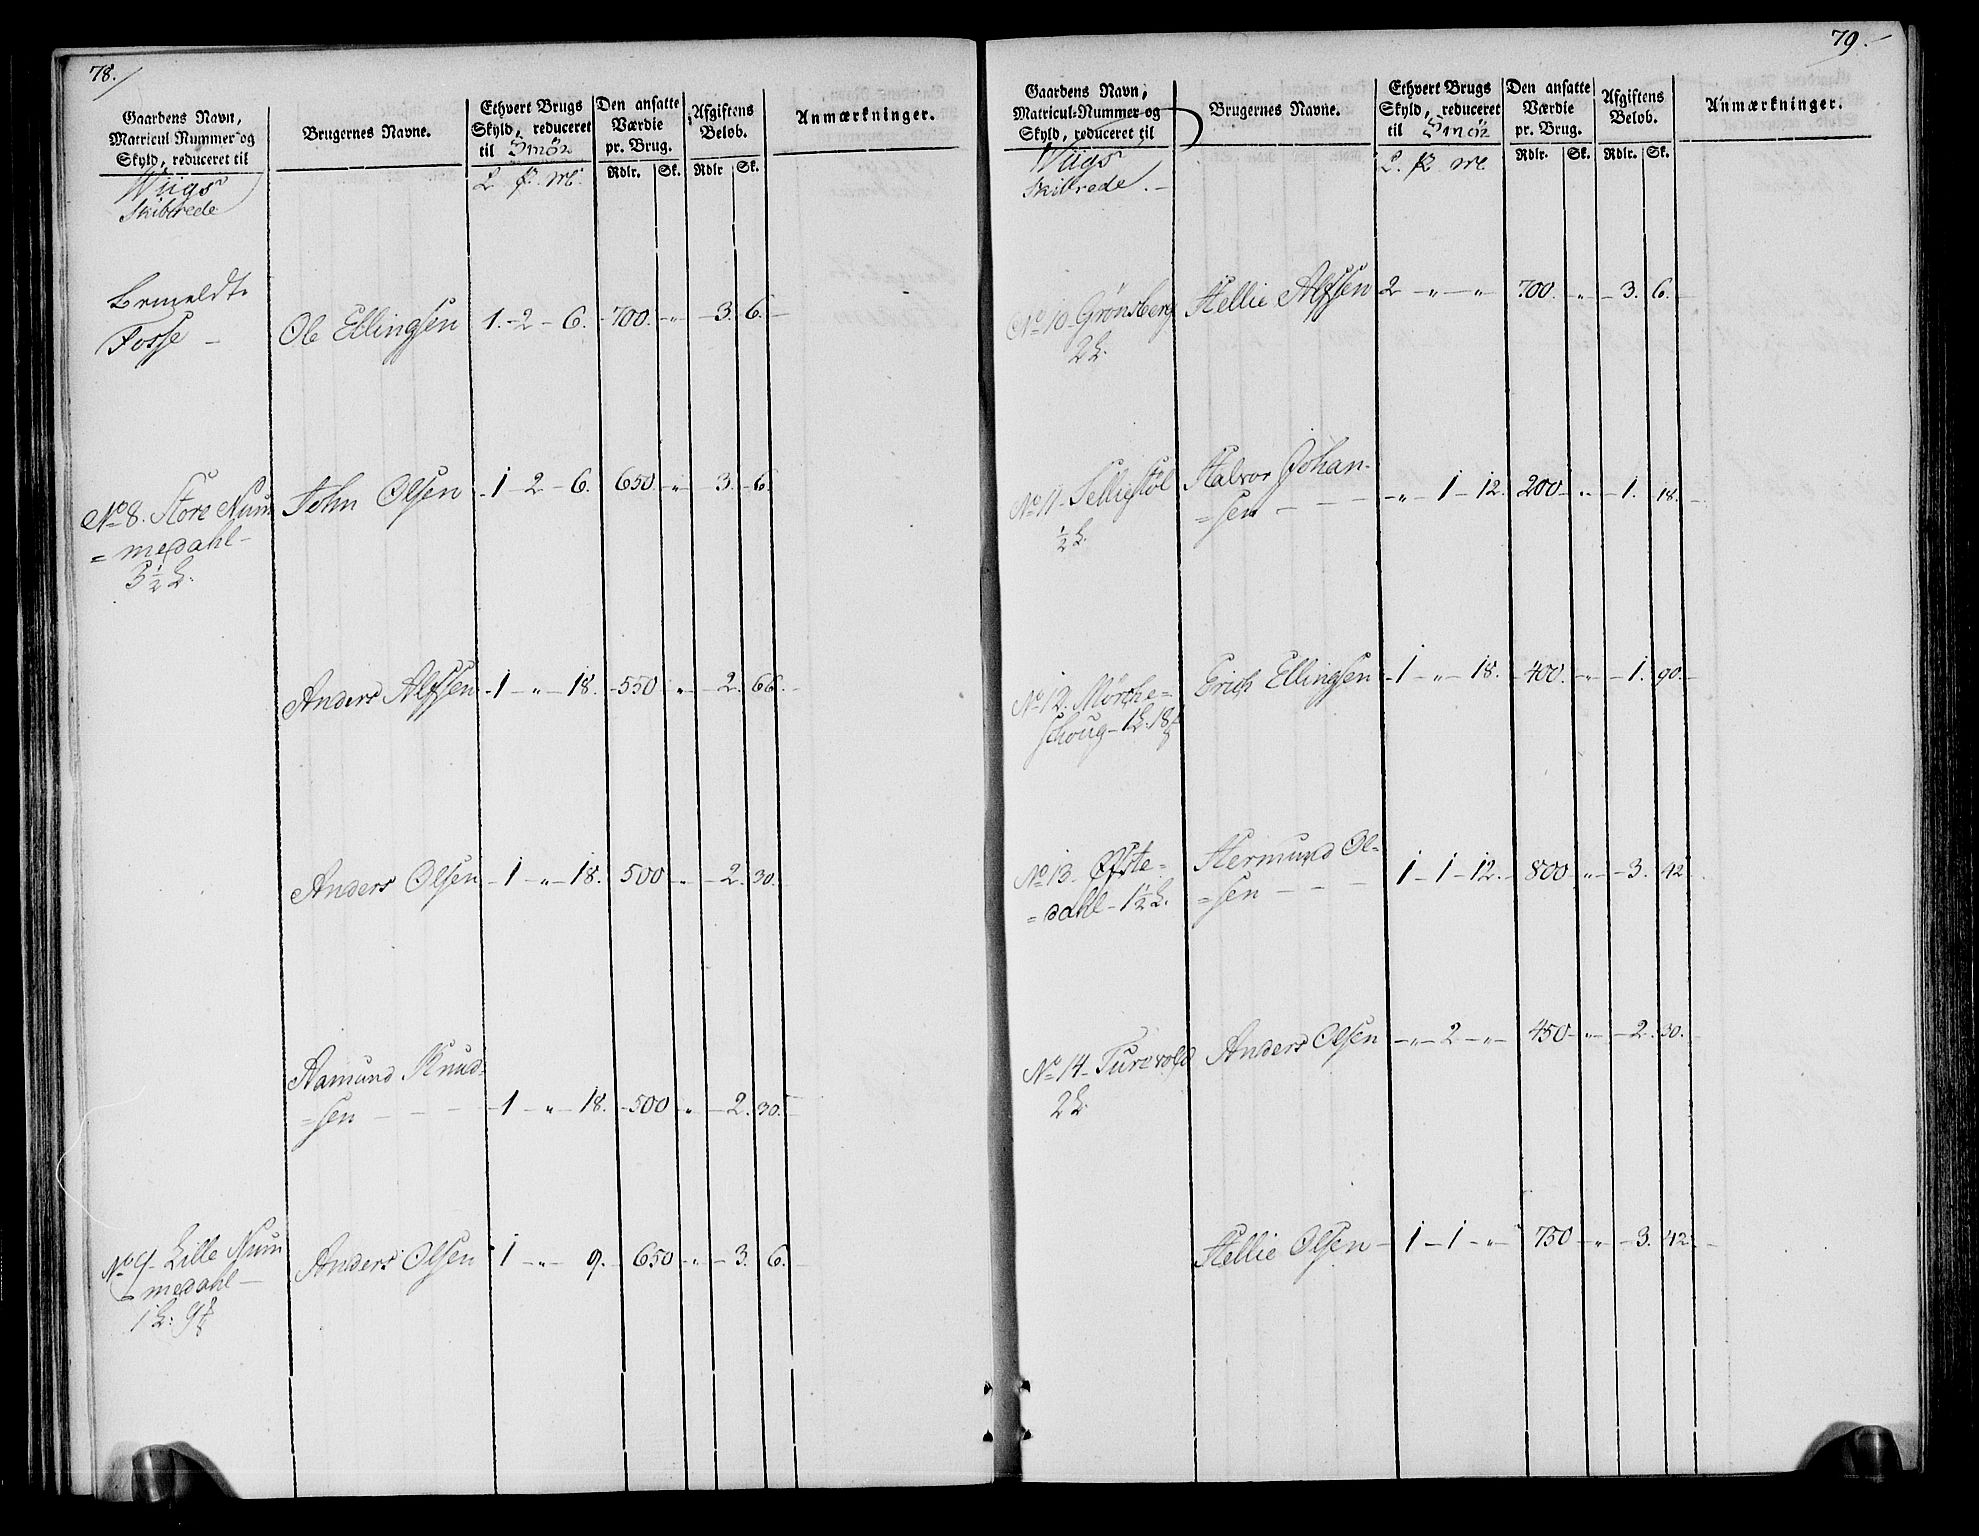 78.
Gaardens Navn,
Matricul Nummer og
Skyld, reduceret til
Wiigs
Skibrede
Brugernes Navne.
Ethvert Brugs
Skyld, reduceret
til Smör
L. ℔. M.
Den ansatte
Værdie
pr. Brug.
Rdlr. Sk.
Afgiftens
Beløb.
Rdlr Sk.
Anmærkninger.
Bemeldte
Fosse –
Ole Ellingsen 1. – 2 – 6. – 700. – „ – 3. 6. –
No 8. Store Num
= medahl –
3½ L.
John Olsen – 1 – 2 – 6. 650 – „ – 3. – 6.
Anders Alfsen – 1 – „ – 18. – 550 „ – 2. 66. –
Anders Olsen – 1 – „ – 18. 500 „ – 2. 30. –
Aamund Knud-
= sen – – – – 1 – „ – 18. – 500 „ – 2. 30. –
No 9. Lille Num
= medahl –
1 L. 9 ℔
Anders Olsen 1 – „ – 9. – 650 – „ – 3. 6. –
79. –
Gaardens Navn,
Matricul-Nummer og
Skyld, reduceret til
Wiigs
Skibrede. –
Brugernes Navne.
Ethvert Brugs
Skyld, reduceret
til Smör
L. ℔ M
Den ansatte
Værdie
pr. Brug.
Rdlr. Sk.
Afgiftens
Beløb.
Rdlr. Sk.
Anmærkninger.
No 10. Grönsberg
2 L.
Hellie Alfsen 2 – „ – „ 700. „ – 3. 6. –
No 11. Selliestöl
½ L.
Halvor Johan-
= sen – – – „ – 1 – 12. 200 – „ – 1. 18. –
No 12. Mörche =
schoug – 1 L. 18 ℔
Erich Ellingsen – 1 – „ – 18. – 400. – „ – 1. 90. –
No 13. Øfste =
= dahl – 1½ L.
Hermund Ol-
= sen – – – 1 – 1 – 12. – 800 – „ – 3. 42
No 14. Turevold
2 L.
Anders Olsen – „ – 2 – „ – 450 – „ – 2. 30. –
Hellie Olsen – 1 – 1 – „ 750 – „ – 3. 42. –